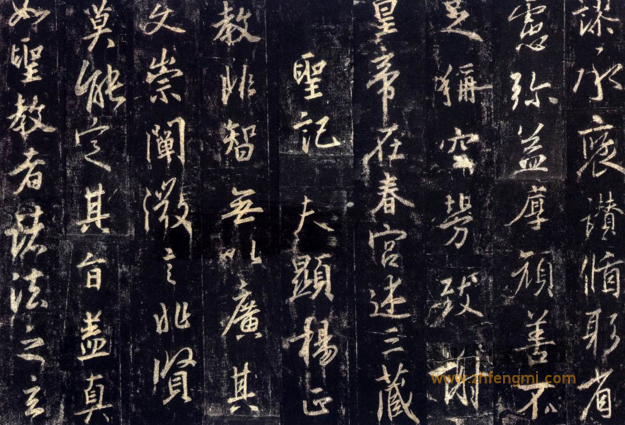 謬承褒讚循躬省
慮弥益厚顔善不
足稱空勞致謝
皇帝在春宮述三藏
聖記 夫顯揚正
教非智無以廣其
文崇闡微言非賢
莫能定其旨蓋真
如聖教者諸法之玄
www.zhfengmi.com